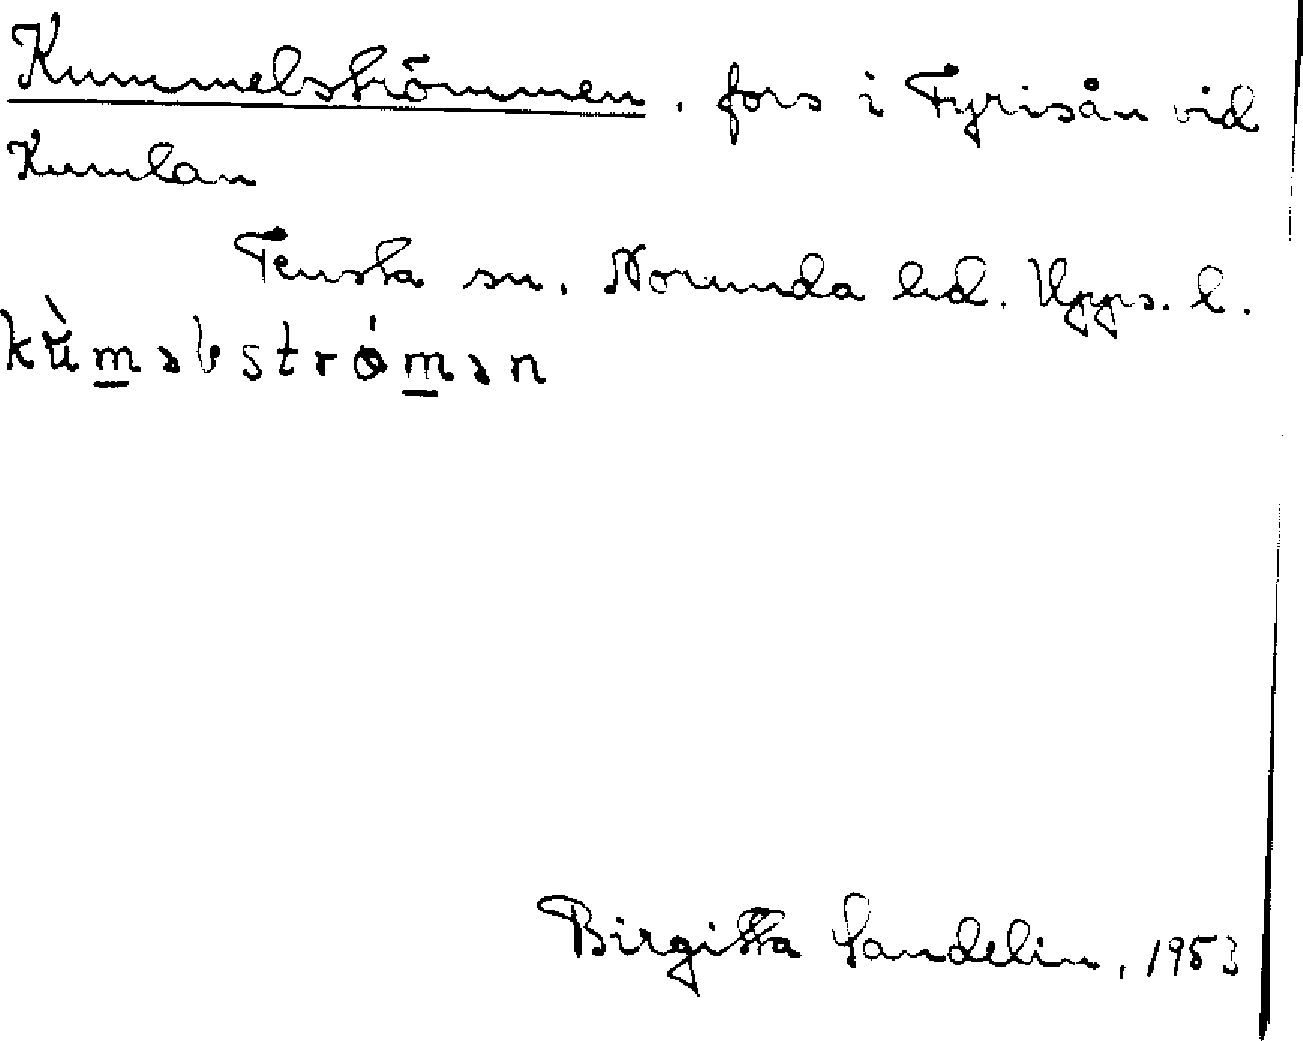 Kummelströmmen, fors i Fyrisån vid
Kumlan
Tensta sn. Norunda hd. Upps. l.
kù̆m̲əlstrǿm̲ən
Birgitta Sandelin, 1953